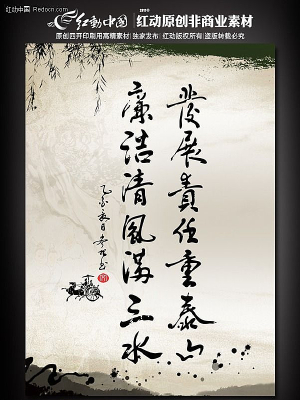 红动中国 Redocn.com
红动中国
红动原创非商业素材
原创四开印刷用高精素材|独家发布|红动版权所有|盗版转载必究
發展責任重泰山
廉洁清風満三水